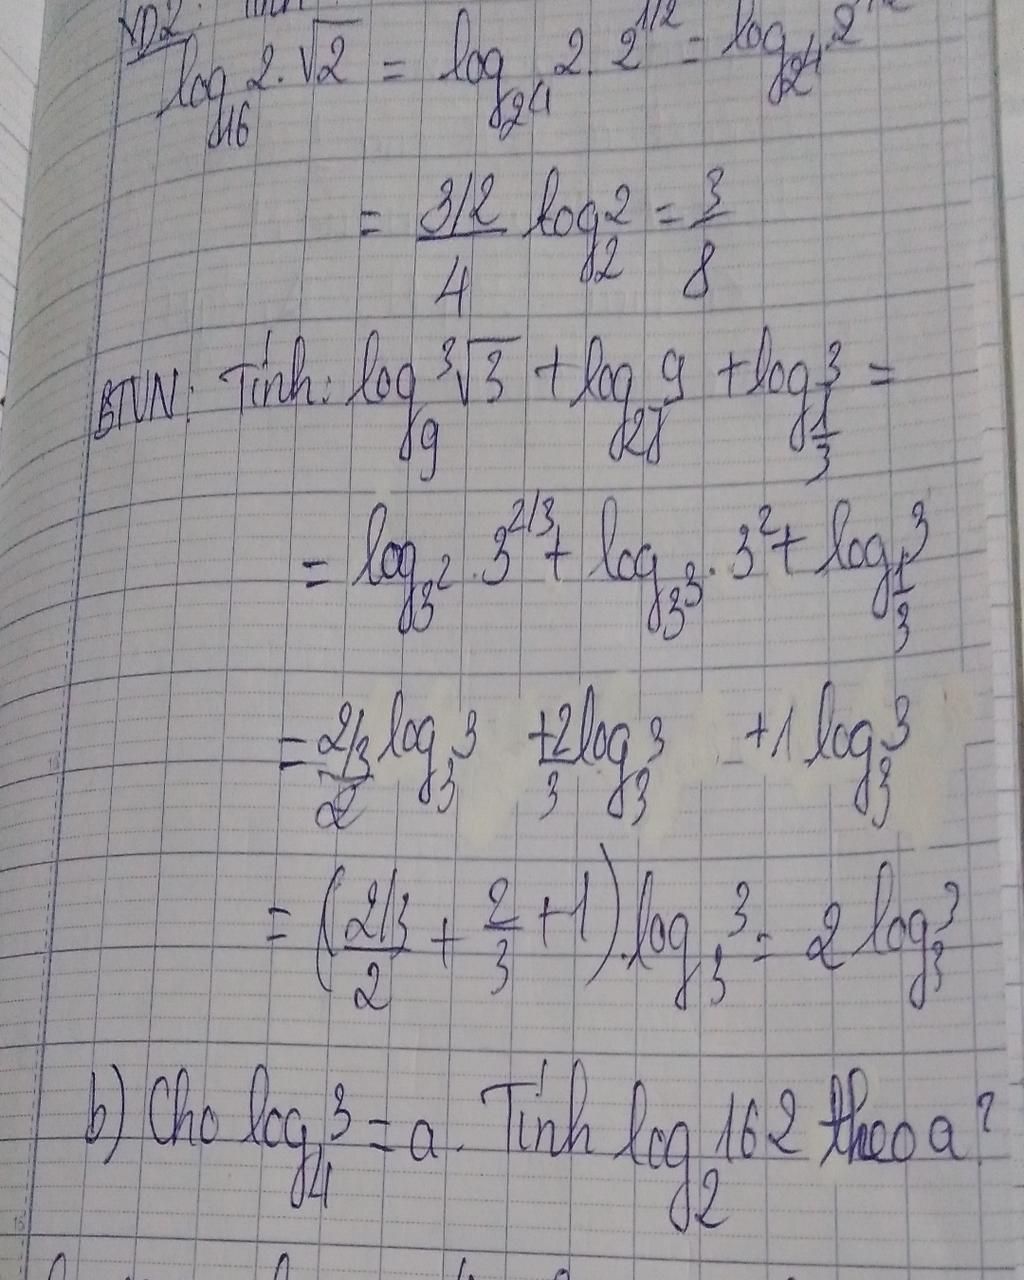 VD2:
log₁₆ 2.√2 = log_{2⁴} 2.2^{1/2} = log_{2⁴} 2
= \frac{3/2}{4} log₂ 2 = \frac{3}{8}
BTVN: Tính: log₉ ³√3 + log₂₇ 9 + log_{\frac{1}{3}} 3 =
= log_{3²} . 3^{2/3} + log_{3³} . 3² + log_{\frac{1}{3}} 3
= \frac{2/3}{2} log₃ 3 + \frac{2}{3} log₃ 3 + 1 log₃ 3
= (\frac{2/3}{2} + \frac{2}{3} + 1) . log₃ 3 = 2 log₃ 3
b) Cho log₄ 3 = a. Tính log₂ 162 theo a?